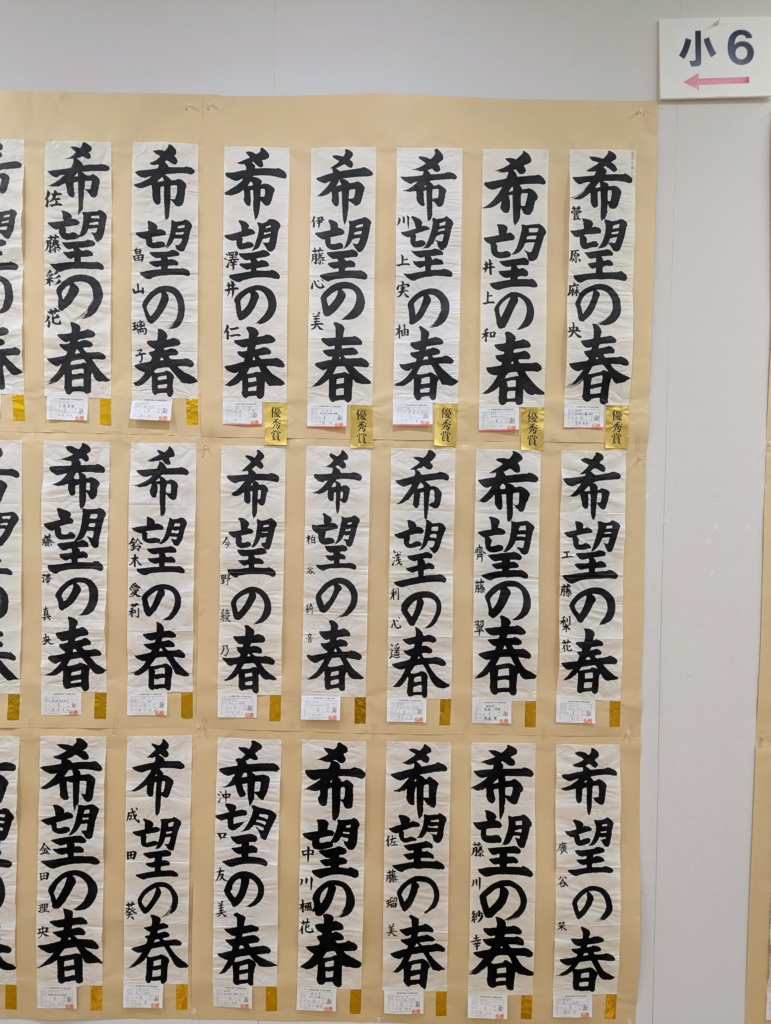 小6
希望の春
菅原麻央
優秀賞
希望の春
井上和
優秀賞
希望の春
川上実柚
優秀賞
希望の春
伊藤心美
優秀賞
希望の春
澤井仁
優秀賞
希望の春
畠山璃子
希望の春
佐藤彩花
希望の春
工藤梨花
希望の春
齊藤翠
希望の春
浅利心遥
希望の春
柏谷綺音
希望の春
今野綾乃
希望の春
鈴木愛莉
希望の春
藤澤真央
希望の春
廣谷栞
希望の春
藤川紗幸
希望の春
佐藤瑠美
希望の春
中川楓花
希望の春
沖口友美
希望の春
成田葵
希望の春
金田理央